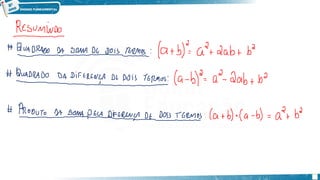 ENSINO FUNDAMENTAL
RESUMINDO
# QUADRADO DA SOMA DE DOIS TERMOS: (a+b)² = a² + 2ab + b²
# QUADRADO DA DIFERENÇA DE DOIS TERMOS: (a-b)² = a² - 2ab + b²
# PRODUTO DA SOMA PELA DIFERENÇA DE DOIS TERMOS: (a+b)·(a-b) = a² + b²